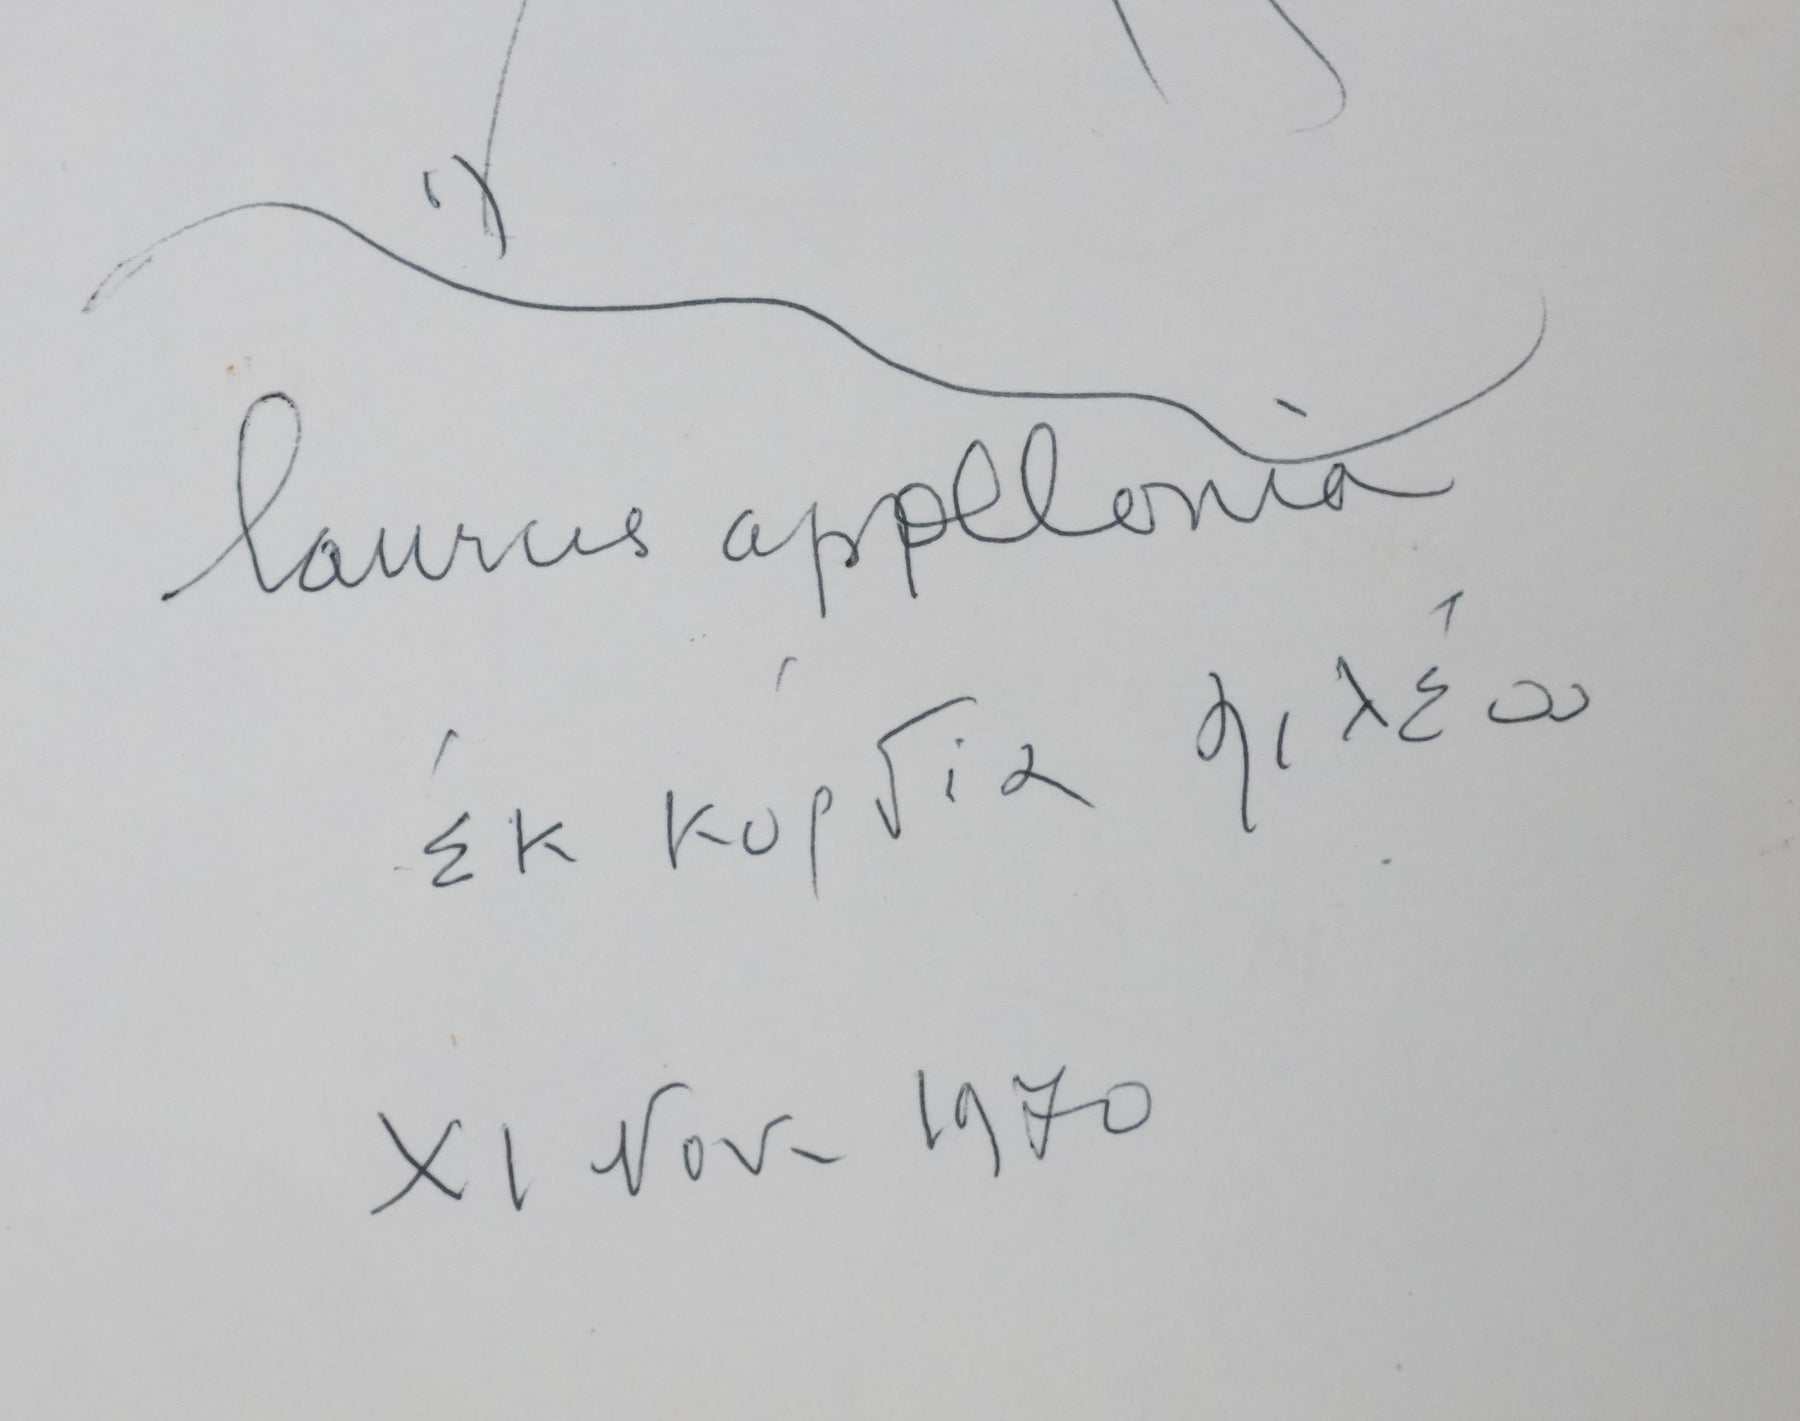 laurus appellonia
έκ κύρδια φιλέω
XI Nov. 1970